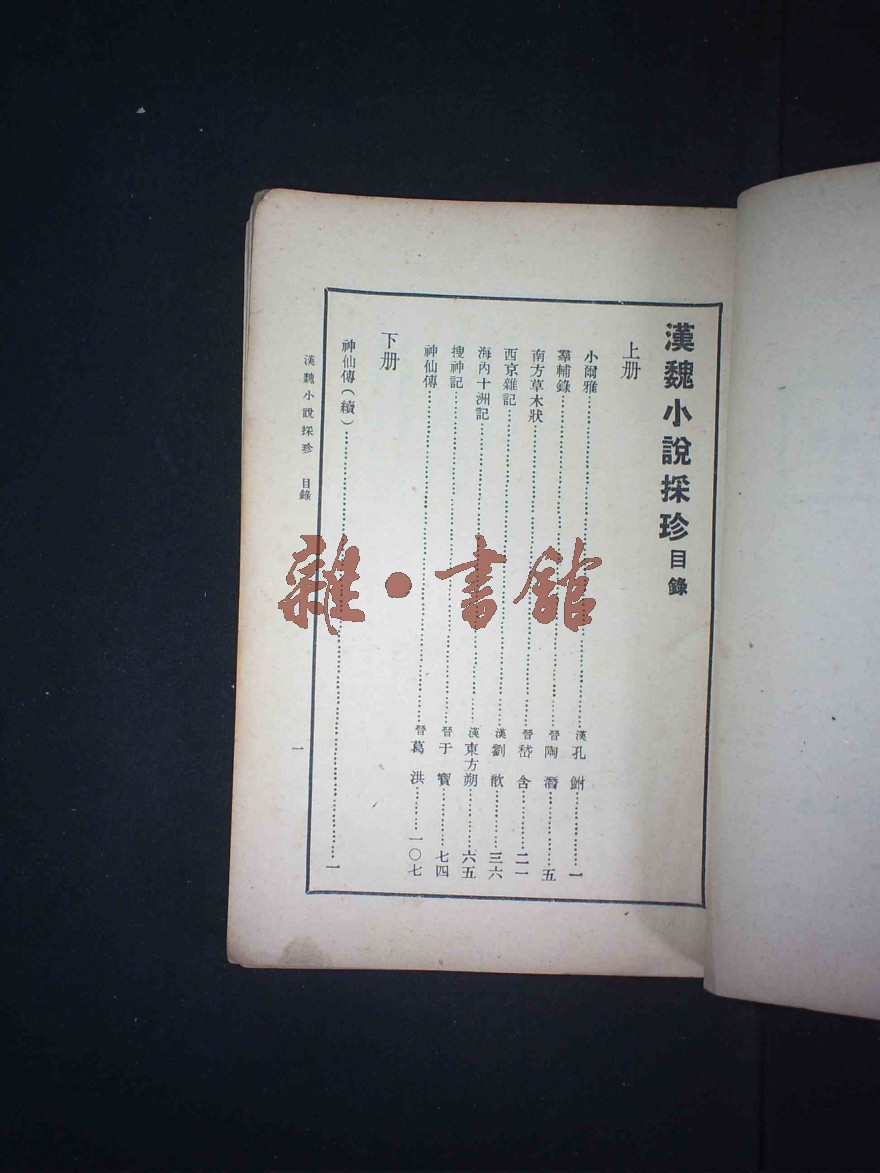 漢魏小說採珍目錄
上册
小爾雅⋯⋯漢孔鮒⋯⋯一
羣輔錄⋯⋯晉陶潛⋯⋯五
南方草木狀⋯⋯晉嵇含⋯⋯二一
西京雜記⋯⋯漢劉歆⋯⋯三六
海內十洲記⋯⋯漢東方朔⋯⋯六五
搜神記⋯⋯晉于寶⋯⋯七四
神仙傳⋯⋯晉葛洪⋯⋯一〇七
下册
神仙傳(續)⋯⋯一
漢魏小說採珍 目錄
一
雜·書館